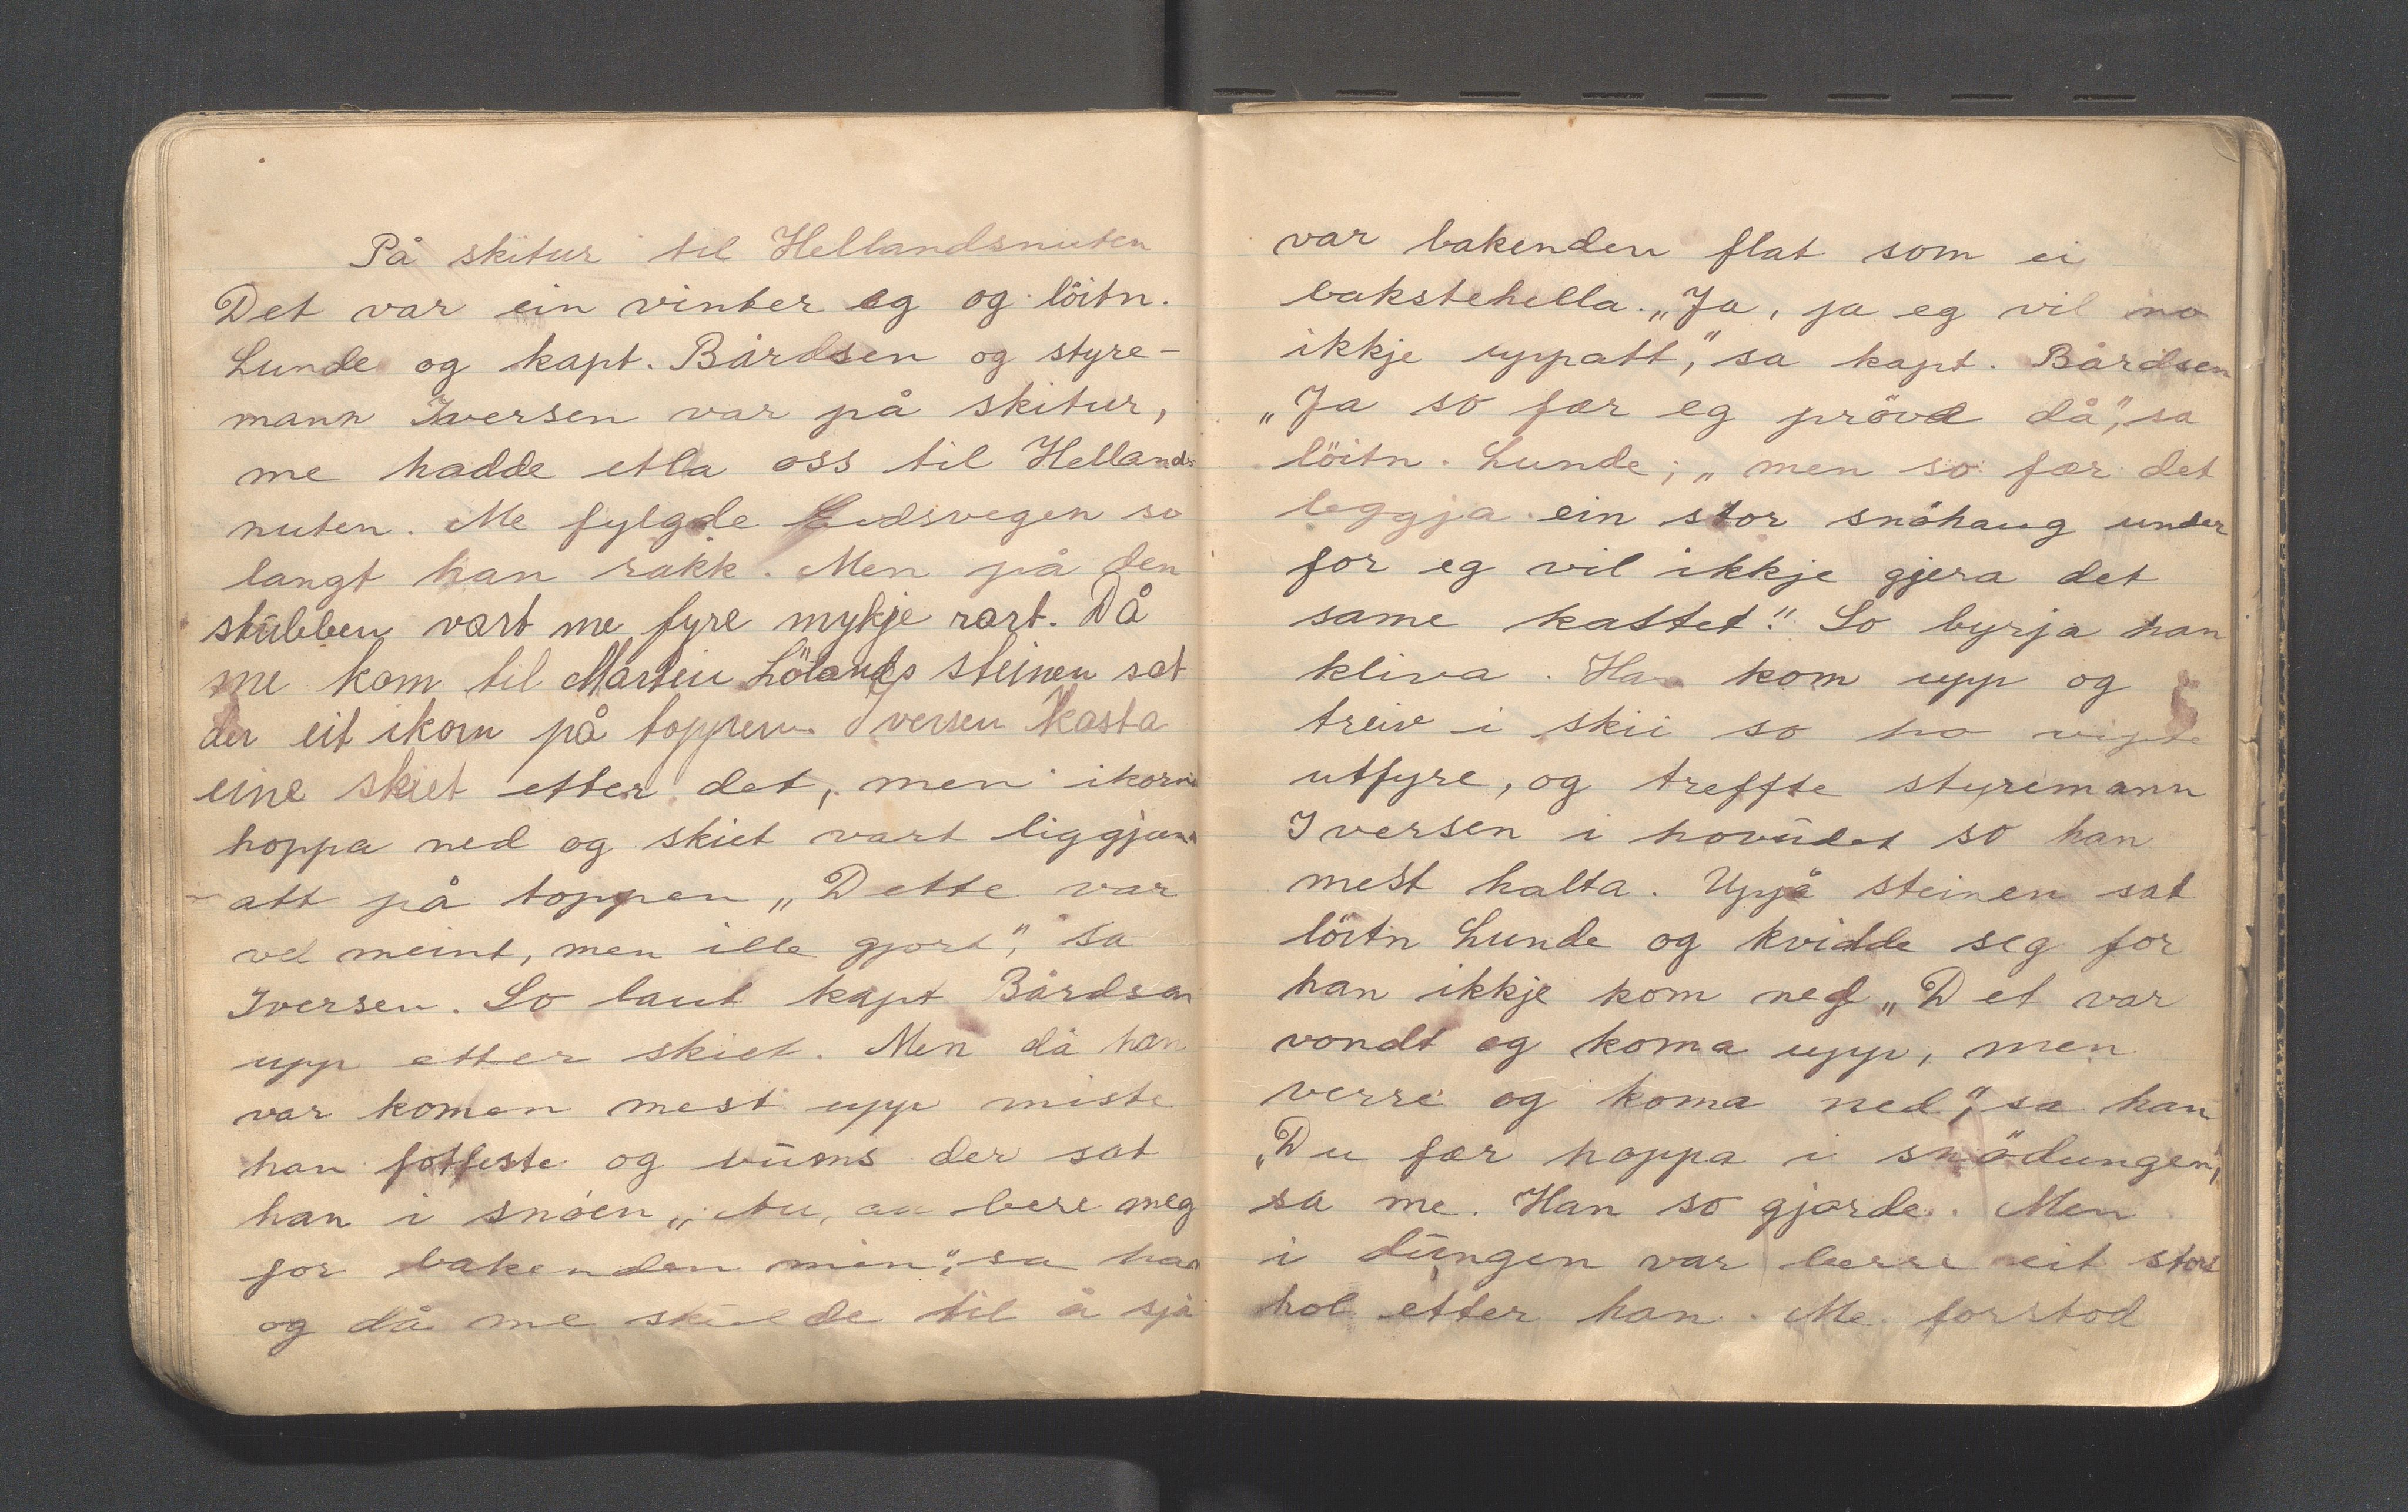 På skitur til Hellandsnuten
Det var ein vinter eg og löitn.
Lunde og kapt. Bårdsen og styre-
mann Iversen var på skitur,
me hadde etla oss til Hellands
nuten. Me fylgde Eidsvegen so
langt han rakk. Men på den
stubben vart me fyre mykje rart. Då
me kom til Martin Lölands steinen sat
der eit ikorn på toppen. Iversen kasta
eine skiet etter det, men ikorne
hoppa ned og skiet vart liggjan
att på toppen „Dette var
vel meint, men ille gjort", sa
Iversen. So laut kapt Bårdsen
upp etter skiet. Men då han
var komen mest upp miste
han fotfeste og bums der sat
han i snöen „ au bere meg
for bakenden min", sa han
og då me skulde til å sjå
var bakenden flat som ei
bakstehella. „Ja, ja eg vil no
ikkje uppatt", sa kapt. Bårdsen
„Ja so fær eg pröva då", sa
löitn. Lunde; „men so fær det
leggja ein stor snöhaug under
for eg vil ikkje gjera det
same kastet". So byrja han
kliva. Han kom upp og
treiv i skii so ho vipte
utfyre, og treffte styremann
Iversen i hovudet so han
mest halta. Uppå steinen sat
löitn Lunde og kvidde seg for
han ikkje kom ned „Det var
vondt og koma upp, men
verre og koma ned", sa han
„Du fær hoppa i snödungen",
sa me. Han so gjorde. Men
i dungen var berre eit stort
hol etter han. Me forstod